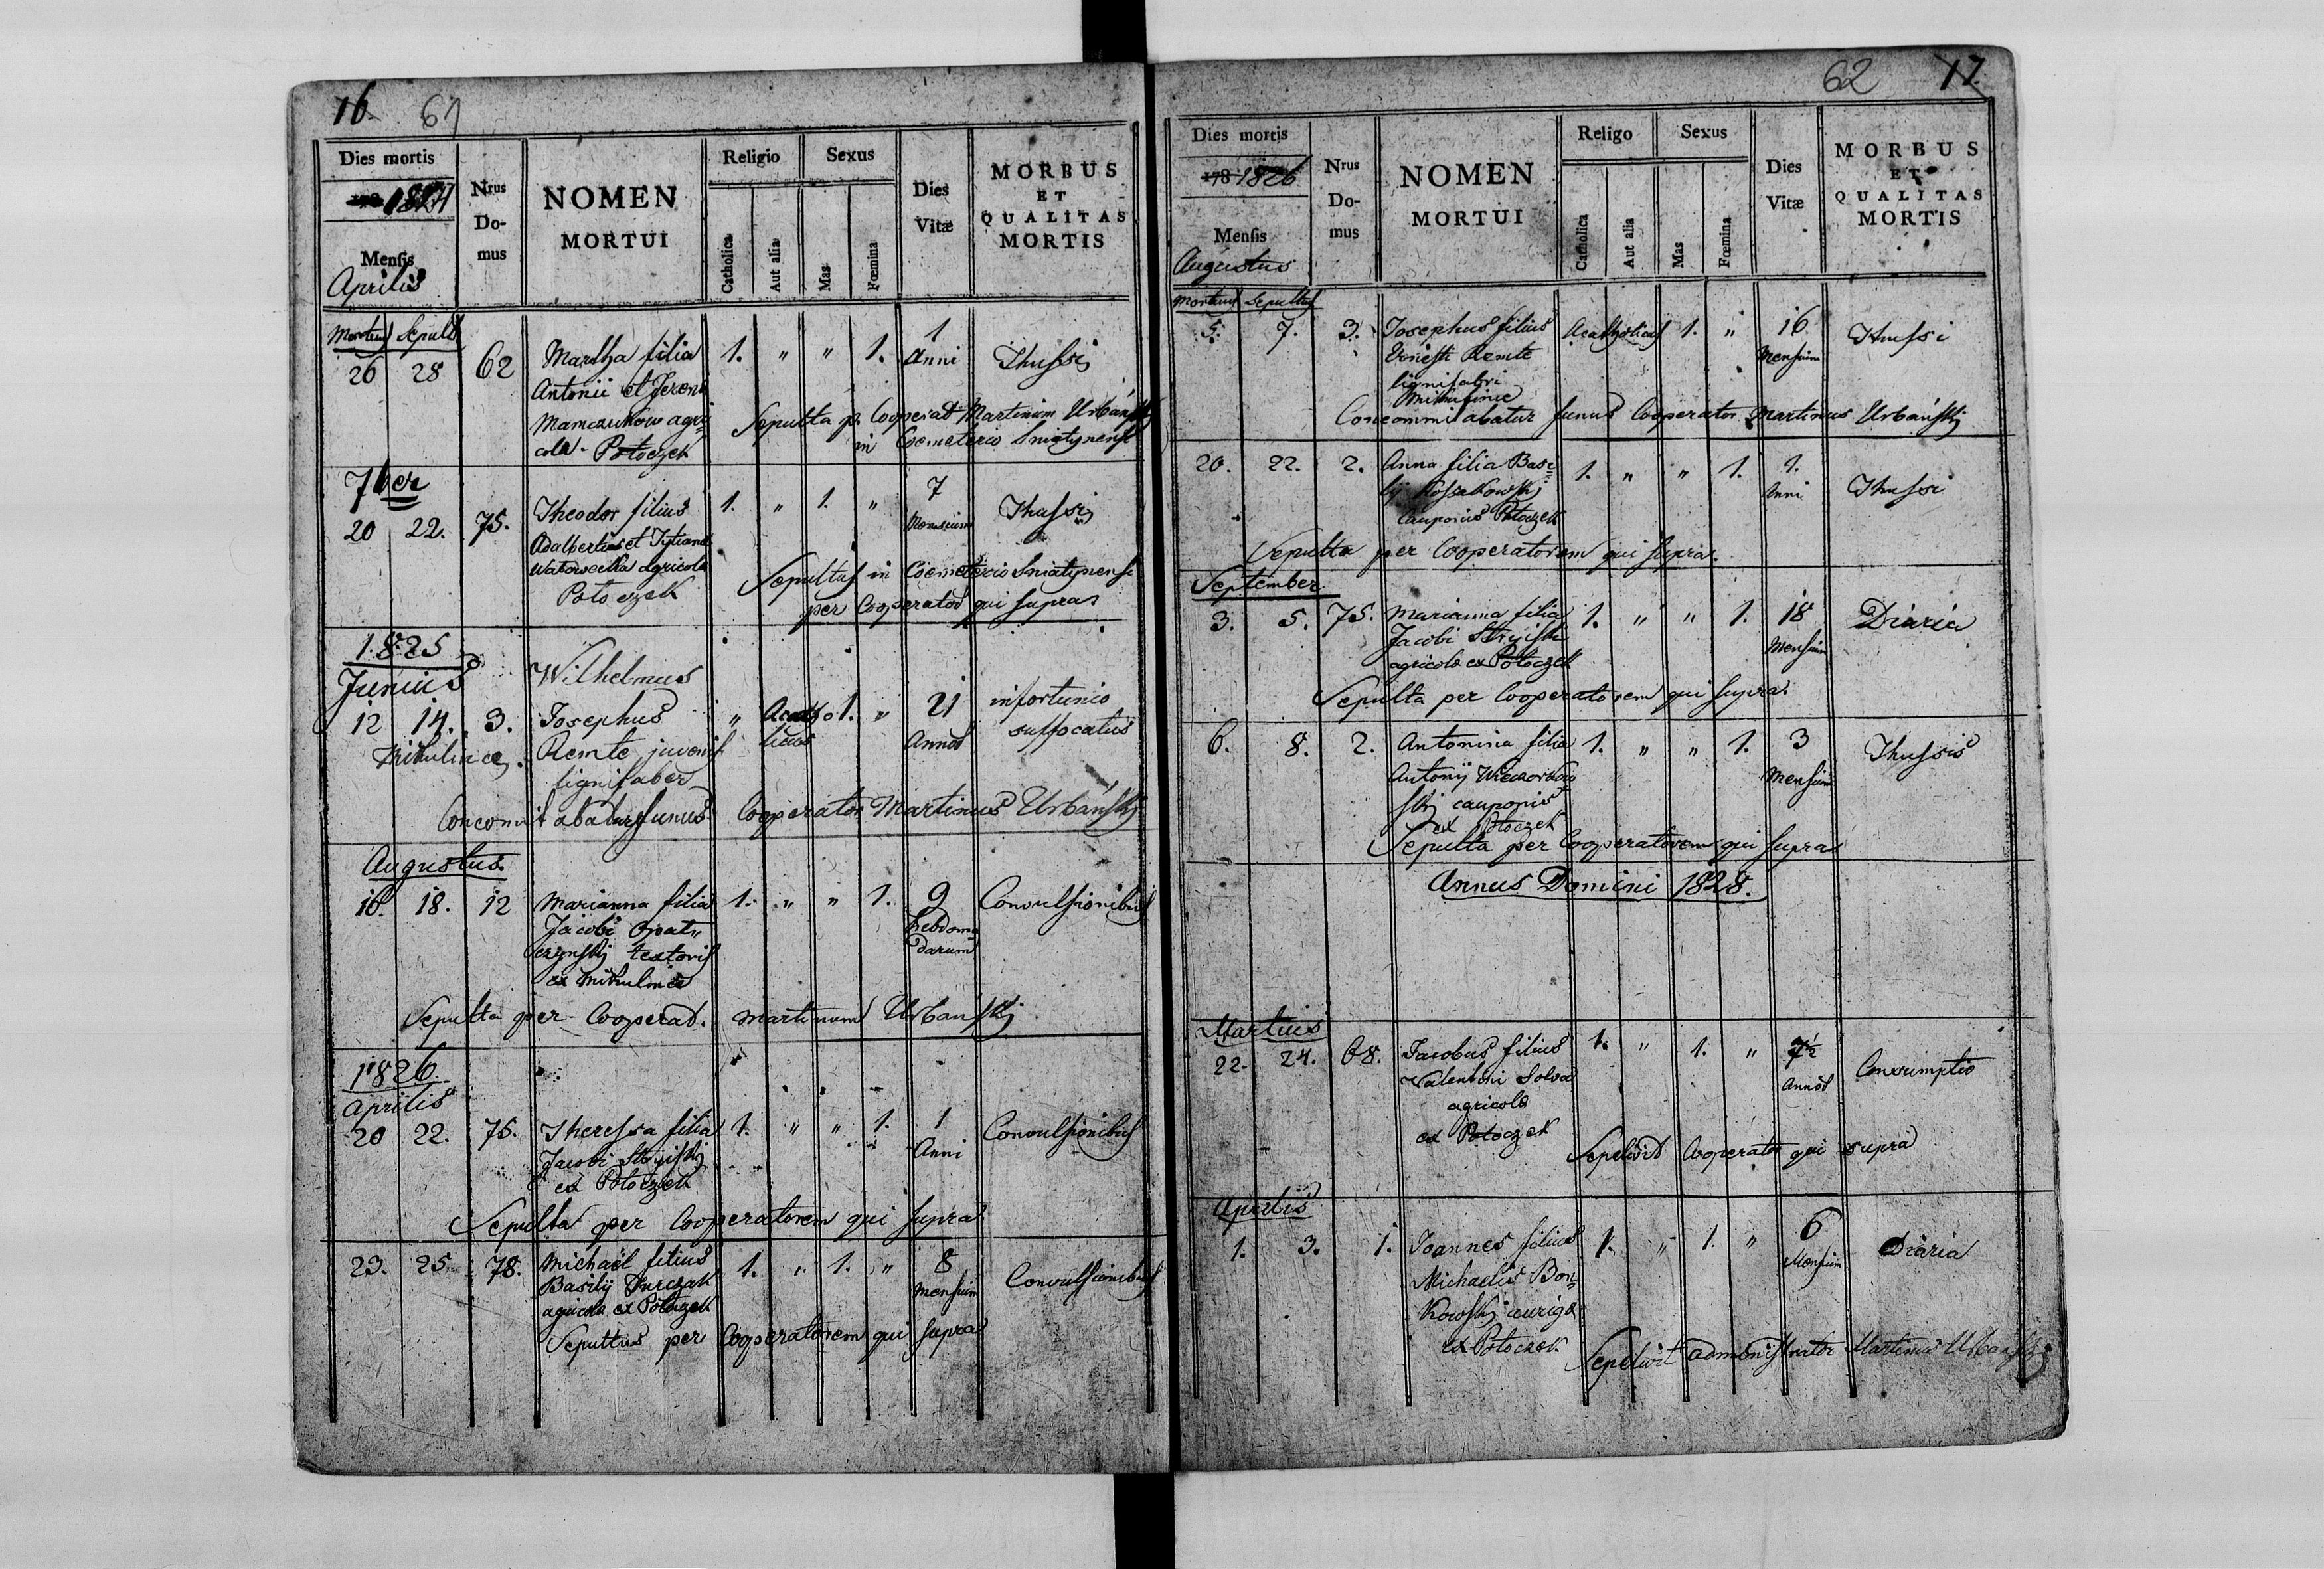 16. 61
Dies mortis
Nrus Domus
NOMEN MORTUI
Religio
Sexus
Catholica
Aut alia
Mas
Fœmina
Dies Vitæ
MORBUS ET QUALITAS MORTIS
Mensis
Aprilis
Mortuus Sepult
26 28 62 Martha filia 1. " " 1. 1 Anni Thussis
Antonii et
agri
cola - Potoczek
Sepulta p. Cooperat Martinum Urbański
in Coemeterio Sniatynensi
7ber
20 22. 75. Theodor filius 1. " 1. " 7 Mensium Thussis
Adalbertus et Tytiana
agricola
Potoczek
Sepultus in Coemeterio Sniatynensi
per Cooperator qui supra
1825
Junius
Wilhelmus
12 14. 3. Josephus " Acatho 1. " 21 infortunio
licus Annos suffocatus
Mikulince. Remte juvenis
lignifaber
Concomitabatur funus Cooperator Martinus Urbański
Augustus.
16. 18. 12 Marianna filia 1. " " 1. 9 Convulsionibus
Jacobi Opat" hebdoma
czynski textoris darum
ex Mikulince
Sepulta per Cooperat. Martinum Urbański
1826.
Aprilis
20 22. 75. Theressa filia 1. " " 1. 1 Convulsionibus
Jacobi Stryiski Anni
ex Potoczek
Sepulta per Cooperatorem qui supra
23. 25. 78. Michaël filius 1. " 1. " 8 Convulsionibus
Basilij Mensium
agricola ex Potoczek
Sepultus per Cooperatorem qui supra
62 17.
Dies mortis
178 1826
Nrus Domus
NOMEN MORTUI
Religo
Sexus
Catholica
Aut alia
Mas
Fœmina
Dies Vitæ
MORBUS ET QUALITAS MORTIS
Mensis
Augustus
Mortuus Sepultus
5. 7. 3. Josephus filius Acatholicus 1. " 16 Thussi
Ernesti Remte Mensium
lignifabri
Mikulince
Concommitabatur funus Cooperator Martinus Urbański
20. 22. 2. Anna filia Basi 1. " " 1. 1. Thussi
lij Kossakowski Anni
Cauponis Potoczek
Sepulta per Cooperatorem qui supra.
September
3. 5. 75. Marianna filia 1. " " 1. 18 Diaria
Jacobi Stryiski Mensium
agricola ex Potoczek
Sepulta per Cooperatorem qui supra.
6. 8. 2. Antonina filia 1. " " 1. 3 Thussis
Antonij Wieczorkow Mensium
ski cauponis
ex Potoczek
Sepulta per Cooperatorem qui supra
Annus Domini 1828.
Martius
22. 24. 68. Jacobus filius 1. " 1. " 7½ Consumptio
Valentini Solva Annos
agricola
ex Potoczek
Sepelivit Cooperator qui supra
Aprilis
1. 3. 1. Joannes filius 1. " 1. " 6 Diaria
Michaelis Bon Mensium
kowski auriga
ex Potoczek
Sepelivit administrator Martinus Urbański